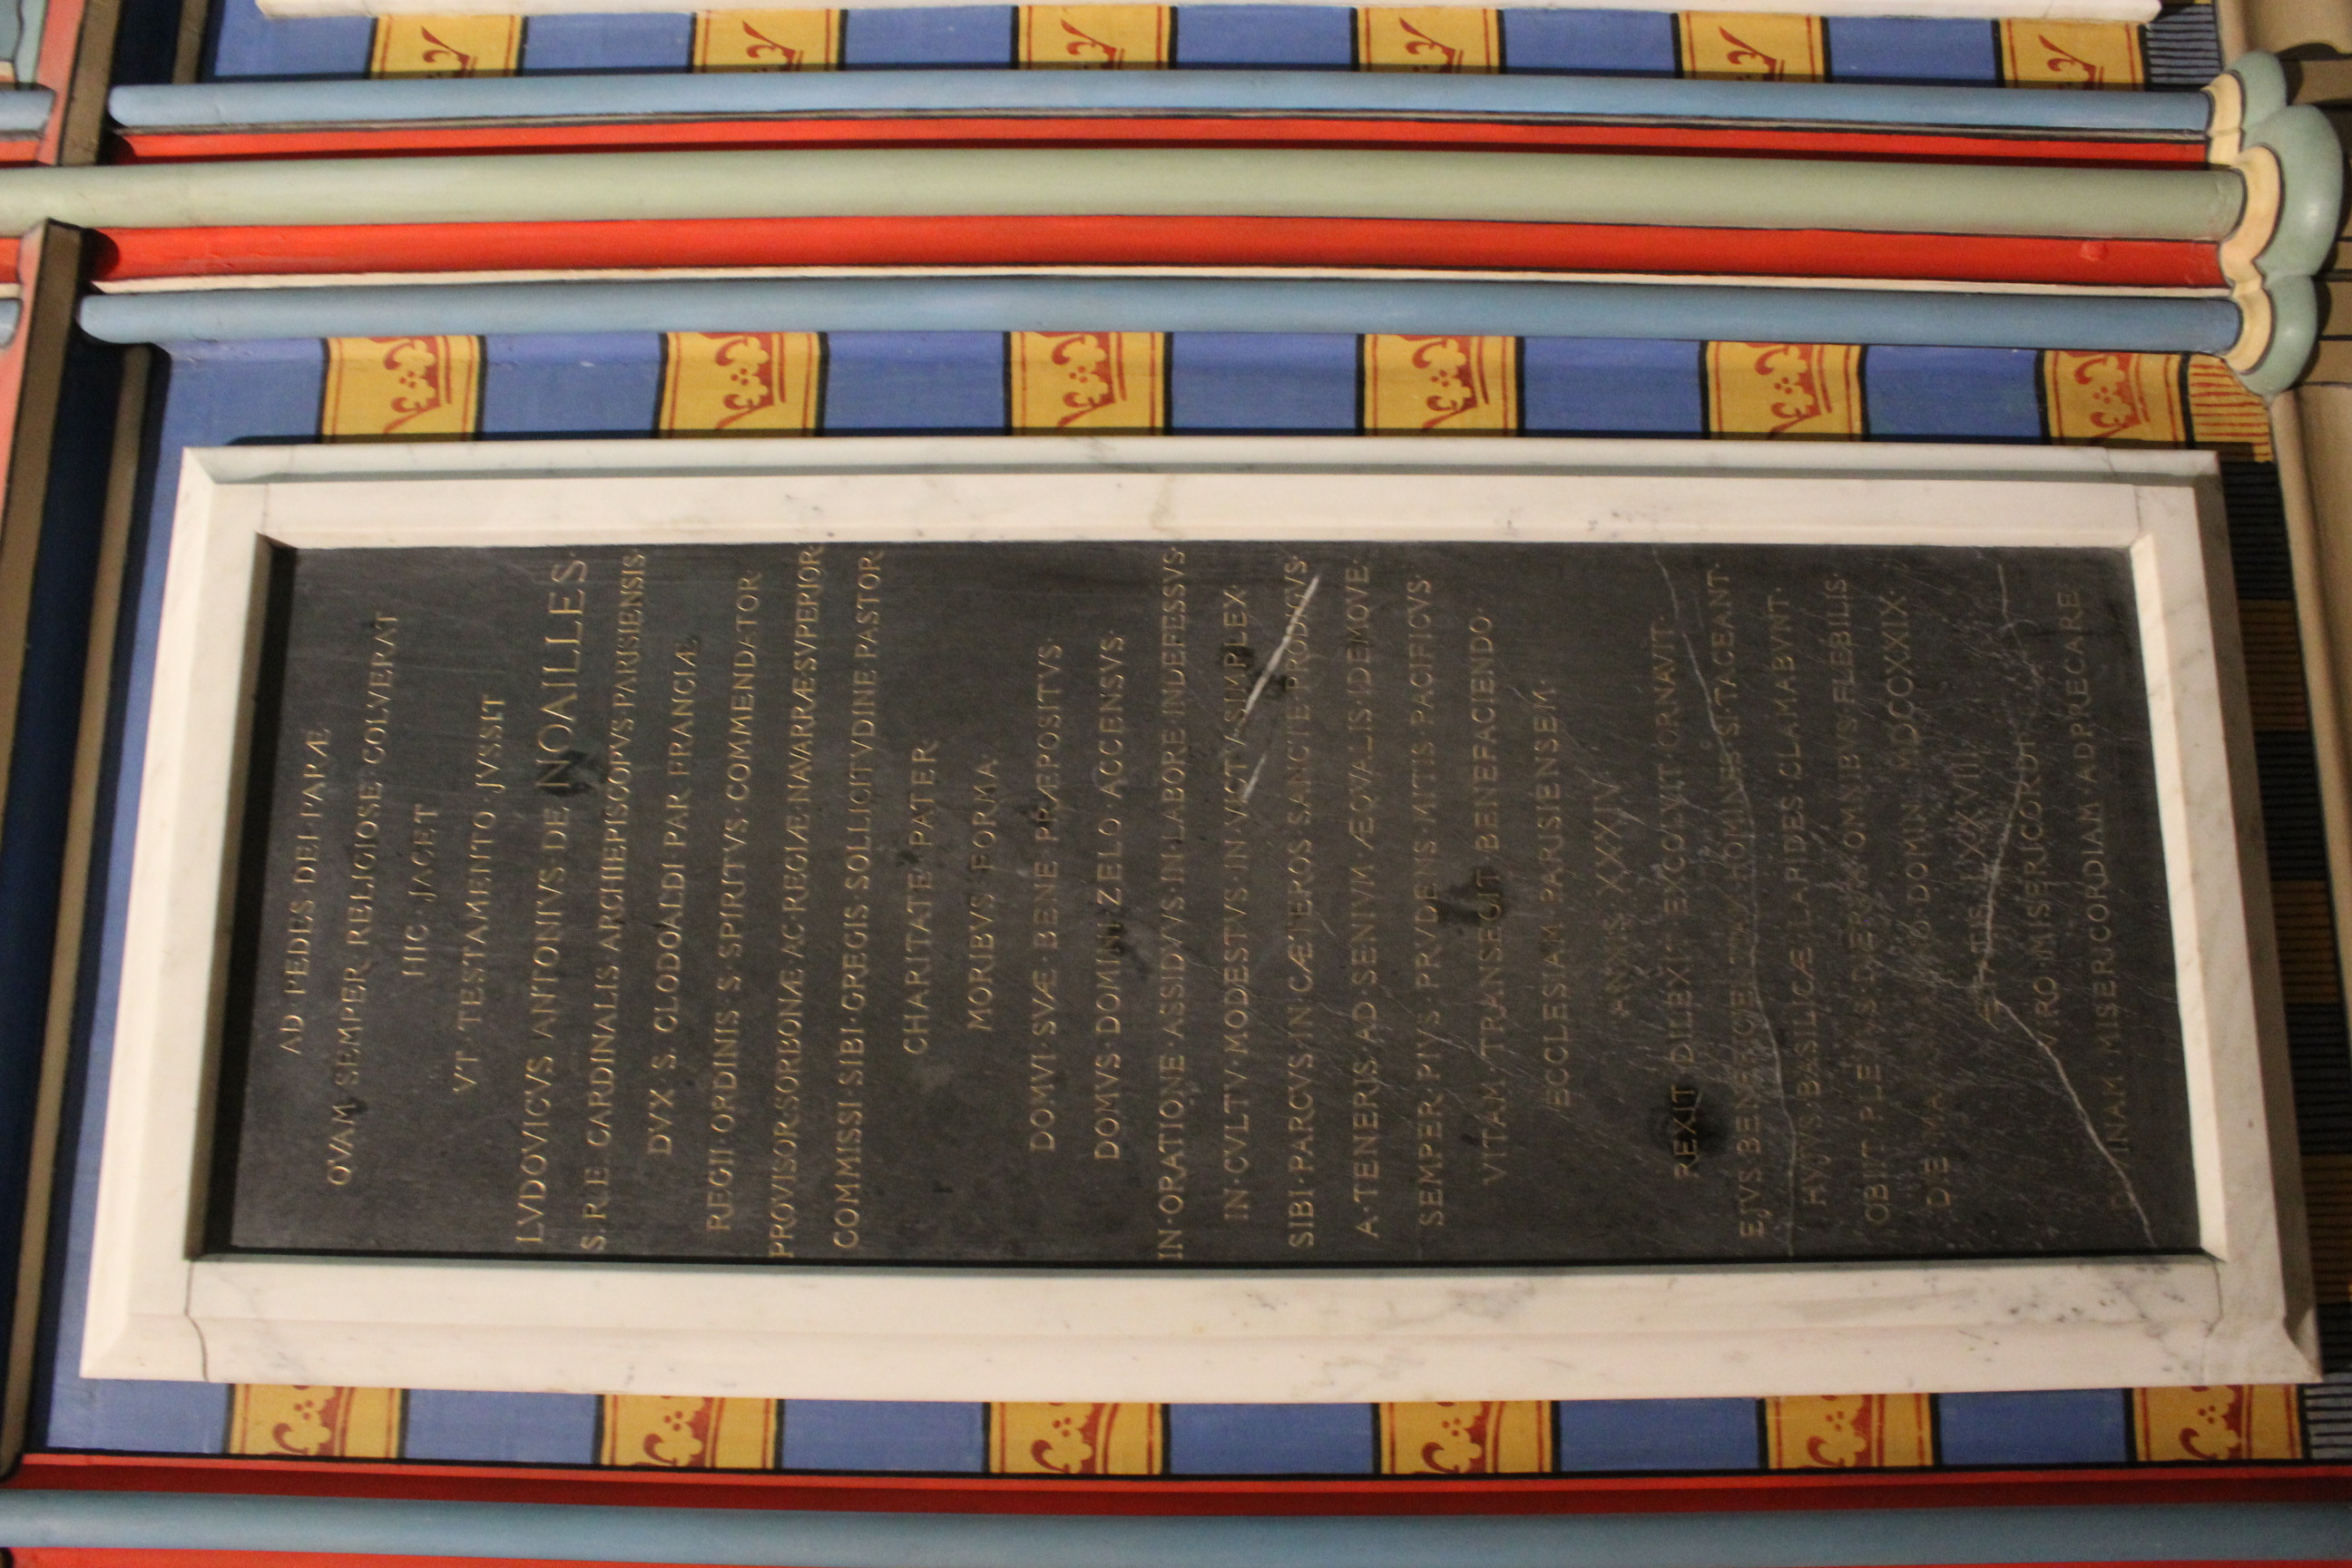 AD PEDES DEI PARÆ
QVAM SEMPER RELIGIOSE COLVERAT
HIC JACET
VT TESTAMENTO JVSSIT
LVDOVICVS ANTONIVS DE NOAILLES·
S.R.E. CARDINALIS ARCHIEPISCOPVS PARISIENSIS·
DVX S. CLODOALDI PAR FRANCIÆ·
REGII ORDINIS S SPIRITVS COMMENDATOR·
PROVISOR SORBONÆ AC REGIÆ NAVARRÆ SVPERIOR·
COMMISSI SIBI GREGIS SOLLICITVDINE PASTOR·
CHARITATE PATER
MORIBVS FORMA·
DOMVI SVÆ BENE PRÆPOSITVS·
DOMVS DOMINI ZELO ACCENSVS·
IN ORATIONE ASSIDVVS IN LABORE INDEFESSVS·
IN CVLTV MODESTVS IN VICTV SIMPLEX·
SIBI PARCVS IN CÆTEROS SANCTE PRODIGVS·
A TENERIS AD SENIVM ÆQVALIS IDEMQVE·
SEMPER PIVS PRVDENS MITIS PACIFICVS·
VITAM TRANSEGIT BENEFACIENDO·
ECCLESIAM PARISIENSEM·
ANNIS XXXIV
REXIT DILEXIT EXCOLVIT ORNAVIT·
EJVS BENEFICIENTIAM HOMINES SI TACEANT·
HVJVS BASILICÆ LAPIDES CLAMABVNT·
OBIIT PLENVS DIERVM OMNIBVS FLEBILIS·
DIE MAII ANNO DOMINI MDCCXXIX·
ÆTATIS LXXVIII
VIRO MISERICORDI
DIVINAM MISERICORDIAM ADPRECARE